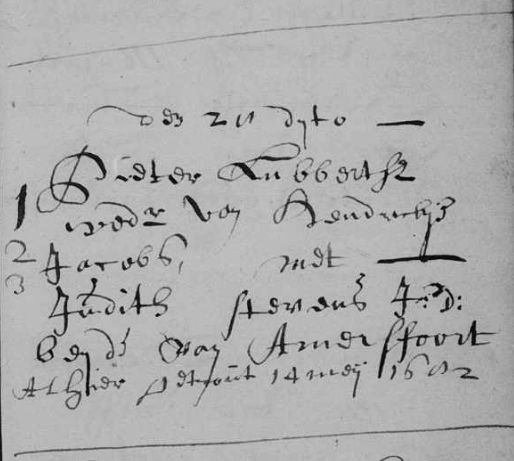 den 21 dyto
1 Pieter Lubbertsz
wedr van Hendrickje
2 Jacobs, met
3 Judith stevens J: D:
beyde van Amersfoort
Alhier getrout 14 meij 1692